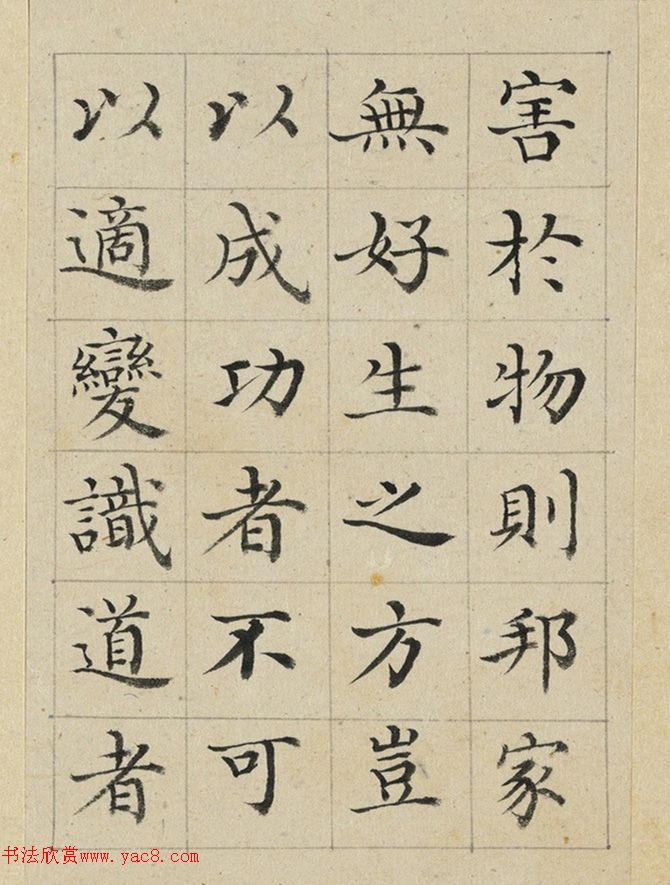 害於物則邦家
無好生之方豈
以成功者不可
以適變識道者
书法欣赏www.yac8.com